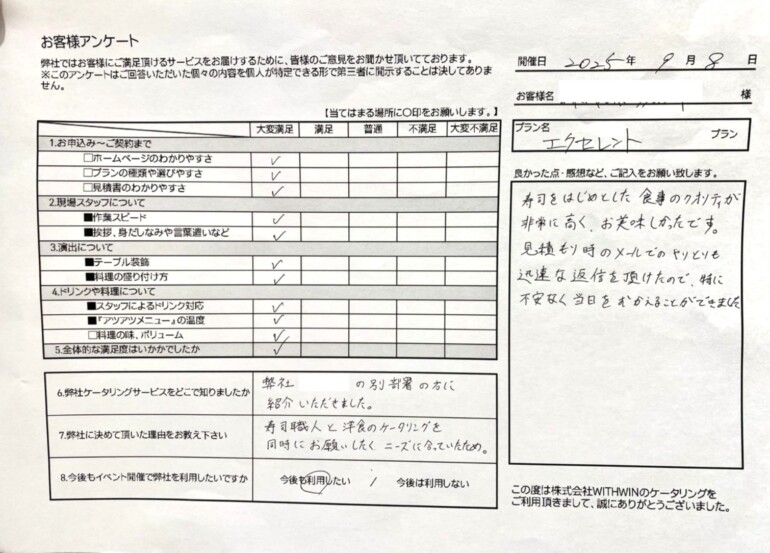 お客様アンケート
弊社ではお客様にご満足頂けるサービスをお届けするために、皆様のご意見をお聞かせ頂いてております。
※このアンケートはご回答いただいた個々の内容を個人が特定できる形で第三者に開示することは決してありま
せん。
開催日 2025年 9月 8日
お客様名 様
プラン名
エクセレント プラン
【当てはまる場所に〇印をお願いします。】
大変満足 満足 普通 不満足 大変不満足
1.お申込み～ご契約まで
□ホームページのわかりやすさ ✓
□プランの種類や選びやすさ ✓
□見積書のわかりやすさ ✓
2.現場スタッフについて
■作業スピード ✓
■挨拶、身だしなみや言葉遣いなど ✓
3.演出について
■テーブル装飾 ✓
■料理の盛り付け方 ✓
4.ドリンクや料理について
■スタッフによるドリンク対応 ✓
■『アツアツメニュー』の温度 ✓
□料理の味、ボリューム ✓
5.全体的な満足度はいかがでしたか ✓
6.弊社ケータリングサービスをどこで知りましたか
弊社 の別部署の方に
紹介いただきました。
7.弊社に決めて頂いた理由をお教え下さい
寿司職人と洋食のケータリングを
同時にお願いしたく、ニーズに合っていたため。
8.今後もイベント開催で弊社を利用したいですか
今後も利用したい / 今後は利用しない
良かった点・感想など、ご記入をお願い致します。
寿司をはじめとした食事のクオリティが
非常に高く、お美味しかったです。
見積もり時のメールでのやりとりも
迅速な返信を頂けたので、特に
不安なく当日をむかえることができました
この度は株式会社WITHWINのケータリングを
ご利用頂きまして、誠にありがとうございました。